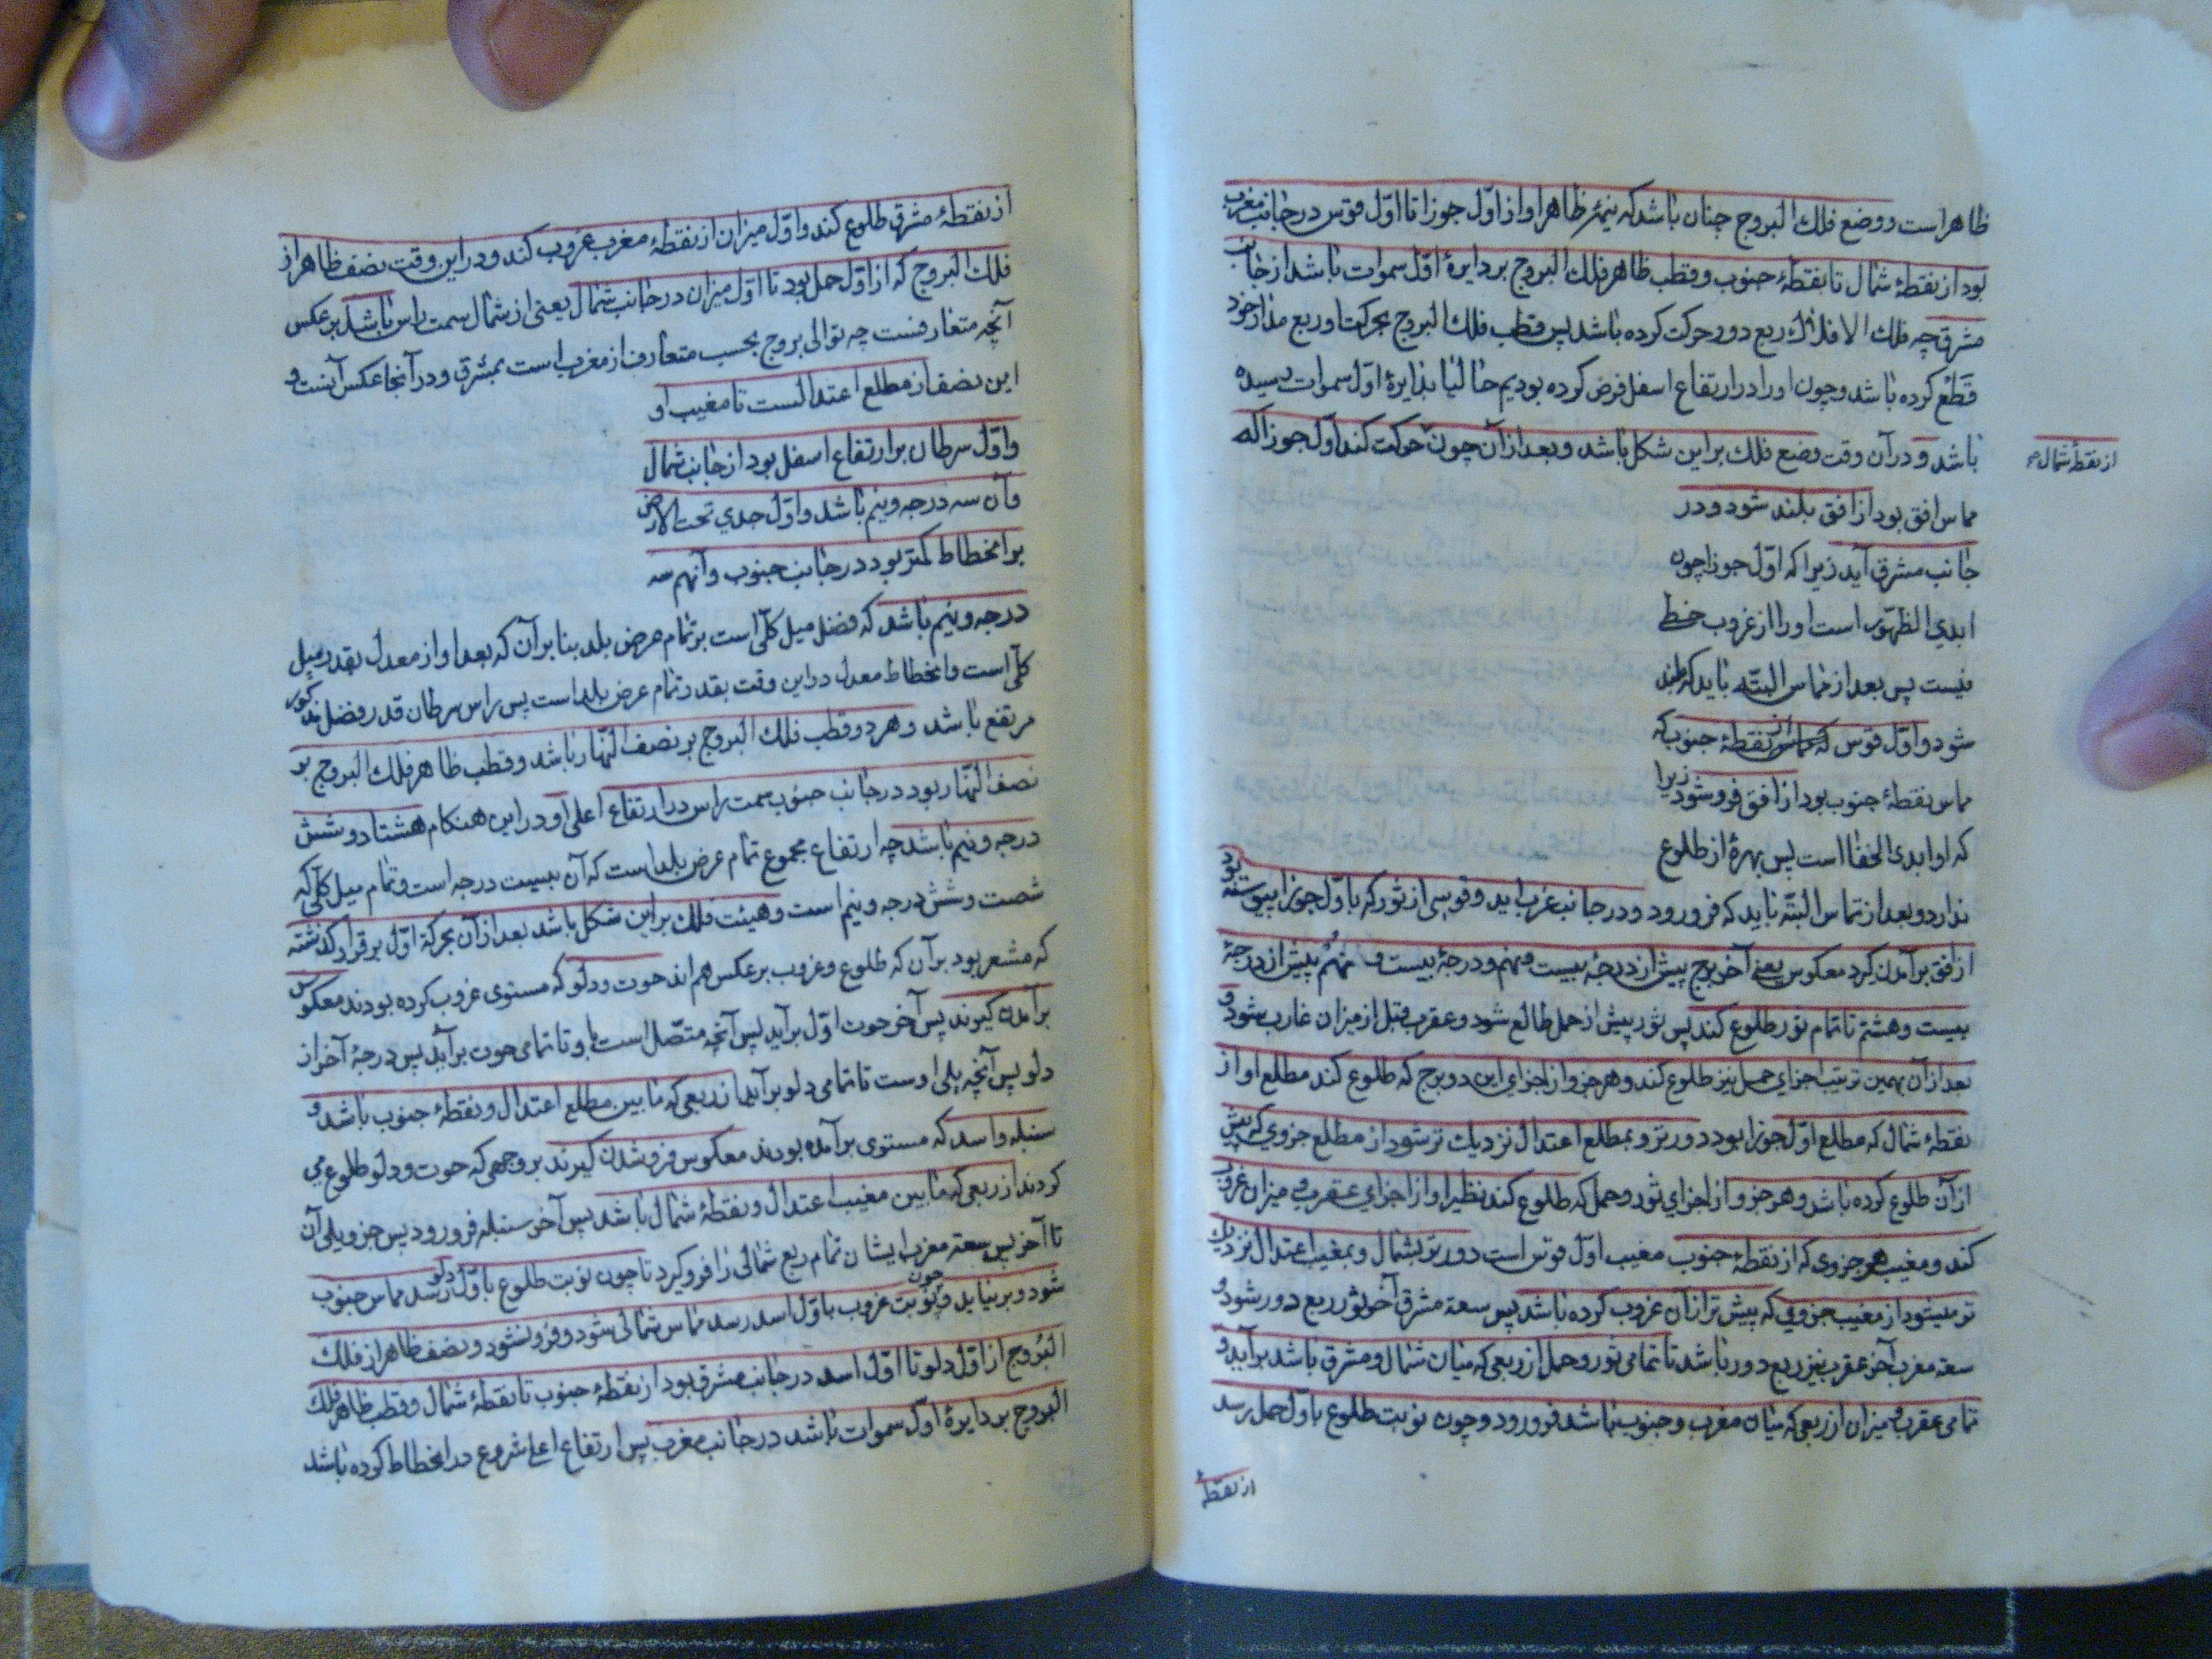 ظاهر است و وضع فلك البروج چنان باشد كه نیمهٔ ظاهر او از اوّل جوزا تا اوّل قوس در جانب مغرب
بود از نقطهٔ شمال تا نقطهٔ جنوب و قطب ظاهر فلك البروج بر دایرهٔ اوّل سموات باشد از جانب
مشرق چه فلك الافلاك ربع دور حركت كرده باشد پس قطب فلك البروج بحركت او ربع مدار خود
قطع كرده باشد و چون او را در ارتفاع اسفل فرض كرده بودیم حالیا بدایرهٔ اوّل سموات رسیده
باشد و در آن وقت وضع فلك بر این شكل باشد و بعد از آن چون حركت كند اوّل جوزا كه
از نقطهٔ شمال
مماس افق بود از افق بلند شود و در
جانب مشرق آید زیرا كه اوّل جوزا چون
ابدی الظهور است او را از غروب حظی
نیست پس بعد از تماس البتّه باید كه بلند
شود و اوّل قوس كه نقطهٔ جنوب كه
مماس نقطهٔ جنوب بود از افق فرو شود زیرا
كه او ابدی الخفا است پس بهرهٔ از طلوع
ندارد و بعد از تماس البتّه باید كه فرو رود و در جانب غرب آید و قوسی از ثور كه باوّل جوزا پیوسته بود
از افق برآمدن گیرد معكوس یعنی آخر برج پیش از درجهٔ بیست و نهم و درجهٔ بیست و نهم پیش از درجهٔ
بیست و هشتم تا تمام ثور طلوع كند پس ثور پیش از حمل طالع شود و عقرب قبل از میزان غارب شود و
بعد از آن بهمین ترتیب اجزای حمل نیز طلوع كند و هر جزو از اجزای این دو برج كه طلوع كند مطلع او از
نقطهٔ شمال كه مطلع اوّل جوزا بود دورتر و بمطلع اعتدال نزدیك تر شود از مطلع جزوی كه پیش
از آن طلوع كرده باشد و هر جزو از اجزای ثور و حمل كه طلوع كند نظیر او از اجزای عقرب و میزان غروب
كند و مغیب هر جزوی كه از نقطهٔ جنوب مغیب اوّل قوس است دورتر بشمال و بمغیب اعتدال نزدیك
تر میشود از مغیب جزوی كه پیش تر از آن غروب كرده باشد پس سعهٔ مشرق آخر ثور ربع دور شود و
سعهٔ مغرب آخر عقرب نیز ربع دور باشد تا تمامی ثور و حمل از ربعی كه میان شمال و مشرق باشد برآید و
تمامی عقرب و میزان از ربعی كه میان مغرب و جنوب باشد فرو رود و چون نوبت طلوع باوّل حمل رسد
از نقطهٔ
از نقطهٔ مشرق طلوع كند و اوّل میزان از نقطهٔ مغرب غروب كند و در این وقت نصف ظاهر از
فلك البروج كه از اوّل حمل بود تا اوّل میزان در جانب شمال یعنی از شمال سمت راس باشد بر عكس
آنچه متعارفست چه توالی بروج بحسب متعارف از مغرب است بمشرق و در آنجا عكس آنست و
این نصف از مطلع اعتدالست تا مغیب او
و اوّل سرطان بر ارتفاع اسفل بود از جانب شمال
و آن سه درجه و نیم باشد و اوّل جدی تحت الارض
بر انحطاط كمتر بود در جانب جنوب و آنهم سه
درجه و نیم باشد كه فضل میل كلّی است بر تمام عرض بلد بنا بر آن كه بعد او از معدل بقدر میل
كلّی است و انحطاط معدل در این وقت بقدر تمام عرض بلد است پس راس سرطان قدر فضل مذكور
مرتفع باشد و هر دو قطب فلك البروج بر نصف النّهار باشد و قطب ظاهر فلك البروج بر
نصف النّهار بود در جانب جنوب سمت راس در ارتفاع اعلی او در این هنكام هشتاد و شش
درجه و نیم باشد چه ارتفاع مجموع تمام عرض بلد است كه آن بیست درجه است و تمام میل كلّی كه
شصت و شش درجه و نیم است و هیئت فلك بر این شكل باشد بعد از آن بحركة اوّل بر قرار گذشته
كه مشعر بود بر آن كه طلوع و غروب بر عكس هم اند حوت و دلو كه مستوی غروب كرده بودند معكوس
برآمدن گیرند پس آخر حوت اوّل برآید پس آنچه متصّل است باو تا تمامی حوت برآید پس درجهٔ آخر از
دلو پس آنچه یلی اوست تا تمامی دلو برآید از ربعی كه مابین مطلع اعتدال و نقطهٔ جنوب باشد و
سنبله و اسد كه مستوی برآمده بودند معكوس فرو شدن گیرند بر وجهی كه حوت و دلو طلوع می
كردند از ربعی كه مابین مغیب اعتدال و نقطهٔ شمال باشد پس آخر سنبله فرو رود پس جزو یلی آن
تا آخر پس سعهٔ مغرب ایشان تمام ربع شمالی را فرو گیرد تا چون نوبت طلوع باوّل دلو رسد مماس جنوب
شود و بر نیاید و چون نوبت غروب باوّل اسد رسد مماس شمالی شود و فرو نشود و نصف ظاهر از فلك
البروج از اوّل دلو تا اوّل اسد در جانب مشرق بود از نقطهٔ جنوب تا نقطهٔ شمال و قطب ظاهر فلك
البروج بر دایرهٔ اوّل سموات باشد در جانب مغرب پس ارتفاع اعلی شروع در انحطاط كرده باشد